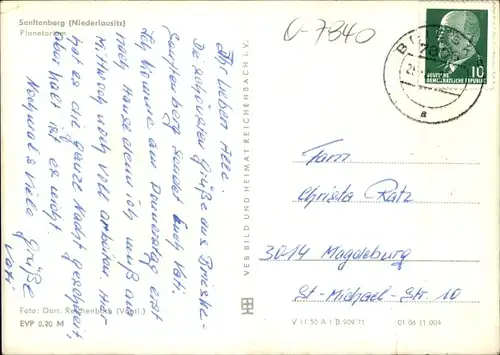 Senftenberg (Niederlausitz)
Planetarium
0-7840
10
DEUTSCHE
DEMOKRATISCHE REPUBLIK
Ihr lieben Alle
Die schönsten Grüße aus Brieske-
Senftenberg sendet Euch Vati.
Ich komme am Donnerstag erst
nach Hause denn ich muß am
Mittwoch noch voll arbeiten. Hier
hat es die ganze Nacht geschneit,
aber kalt ist es nicht
Nochmals viele Grüße
Vati
VEB BILD UND HEIMAT REICHENBACH i. V.
Fam
Christa Ratz
3014 Magdeburg
St-Michael-Str. 10
Foto: Darr, Reichenbach (Vogtl.)
EVP 0,20 M
V 11 50 A 1 B 909 71
01 06 11 004